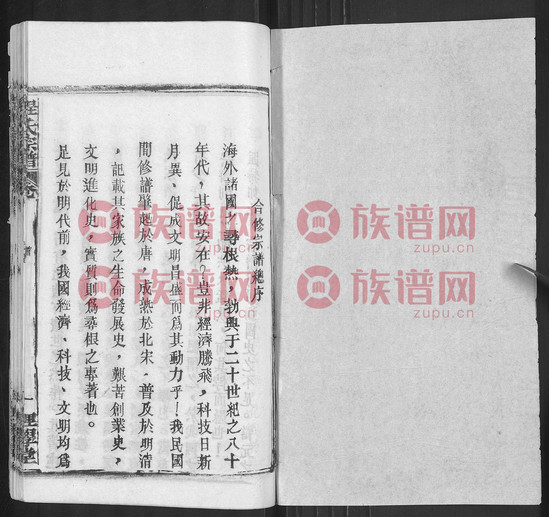 合修宗譜總序
海外諸國之尋根熱，勃興于二十世紀之八十
年代，其故安在？豈非經濟騰飛，科技日新
月異、促成文明昌盛而爲其動力乎！我民國
間修譜肇起於唐，成熟於北宋、普及於明清
，記載其家族之生命發展史，艱苦創業史，
文明進化史，實質則爲尋根之專著也。
足見於明代前，我國經濟、科技、文明均爲
程氏宗譜
卷
首
一
理學堂
族谱网
zupu.cn
族谱网
zupu.cn
族谱网
zupu.cn
族谱网
zupu.cn
族谱网
zupu.cn
族谱网
zupu.cn